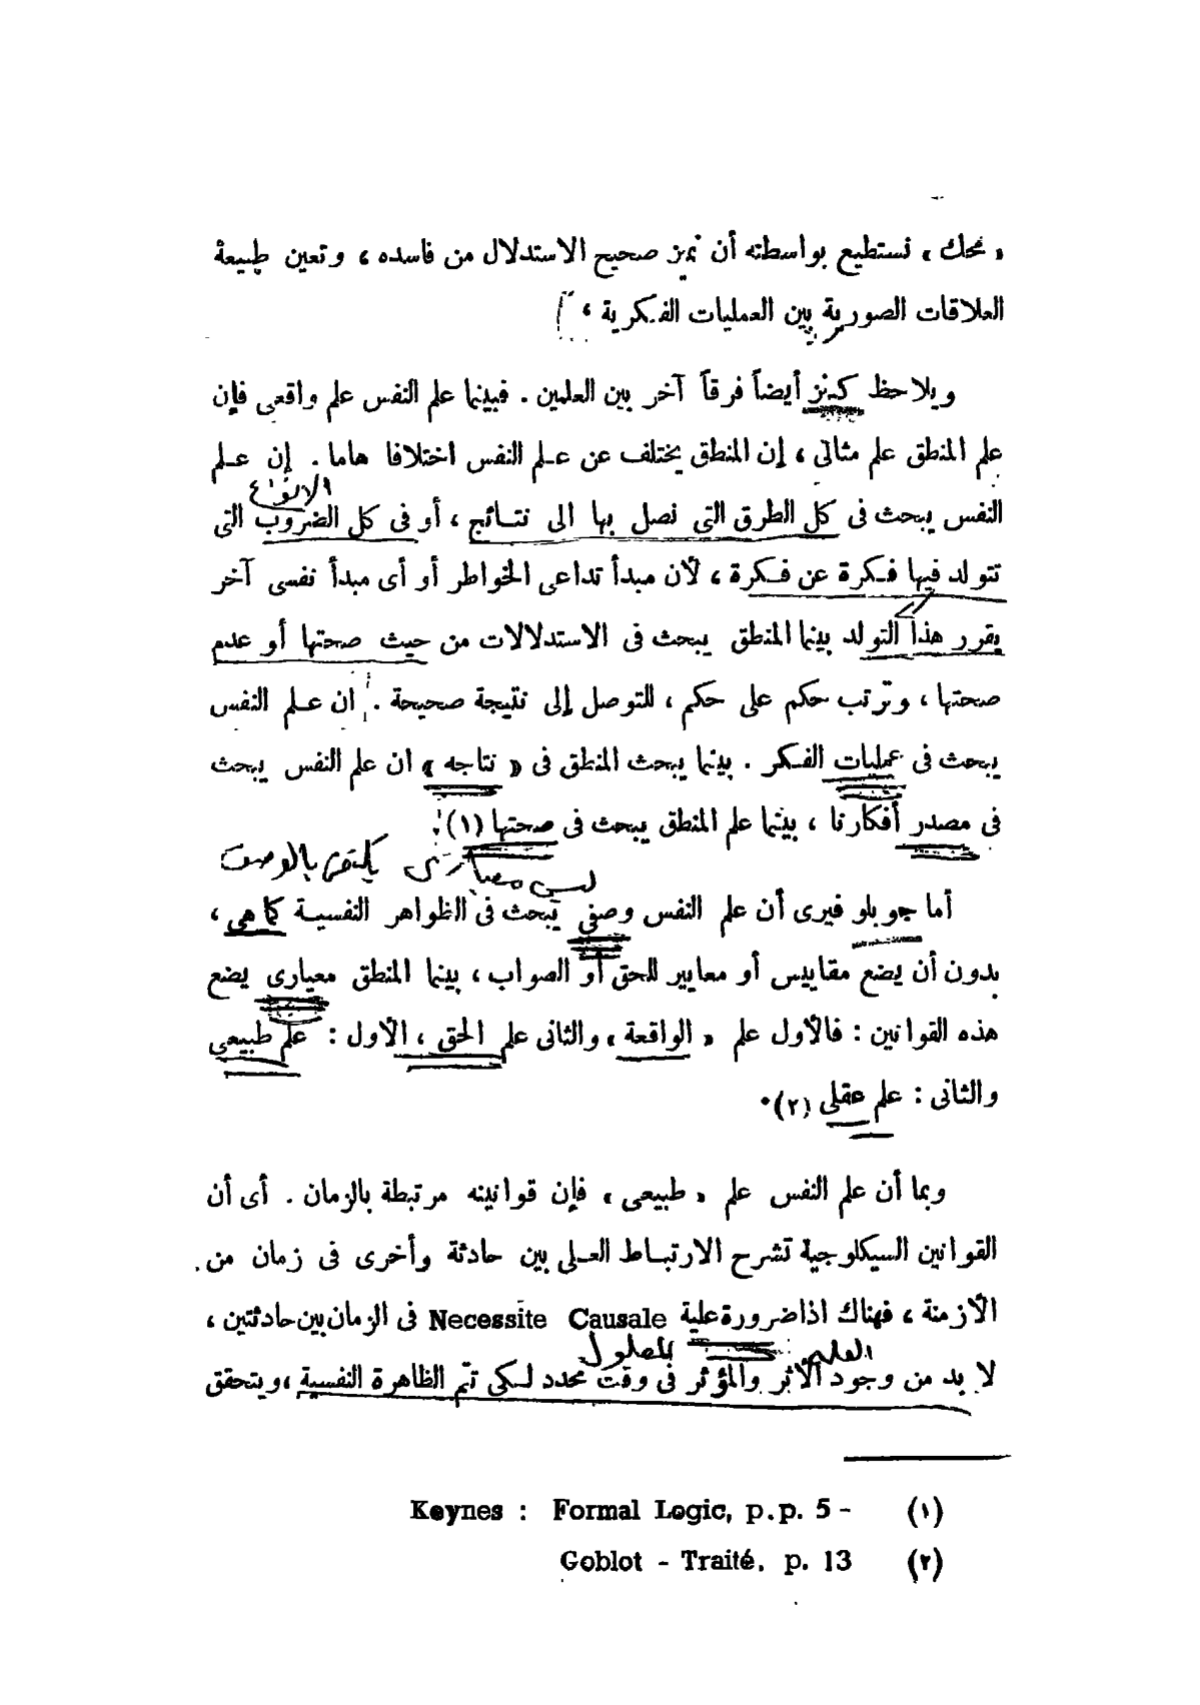 « محك » نستطيع بواسطته أن نميز صحيح الاستدلال من فاسده ، وتعين طبيعة
العلاقات الصورية بين العمليات الفكرية ،
ويلاحظ كينز أيضاً فرقاً آخر بين العلمين . فبينما علم النفس علم واقعى فإن
علم المنطق علم مثالى ، إن المنطق يختلف عن علم النفس اختلافا هاما . إن علم
الانواع
النفس يبحث فى كل الطرق التى نصل بها الى نتائج ، أو فى كل الضروب التى
تتولد فيها فكرة عن فكرة ، لأن مبدأ تداعى الخواطر أو أى مبدأ نفسى آخر
يقرر هذا التولد بينما المنطق يبحث فى الاستدلالات من حيث صحتها أو عدم
صحتها ، وترتب حكم على حكم ، للتوصل إلى نتيجة صحيحة . ان علم النفس
يبحث فى عمليات الفكر . بينما يبحث المنطق فى « نتاجه » ان علم النفس يبحث
فى مصدر أفكارنا ، بينما علم المنطق يبحث فى صحتها (١) .
ليس معيارى يكتفى بالوصف
أما جوبلو فيرى أن علم النفس وصفى يبحث فى الظواهر النفسية كما هى ،
بدون أن يضع مقاييس أو معايير للحق أو الصواب ، بينما المنطق معيارى يضع
هذه القوانين : فالأول علم « الواقعة » والثانى علم الحق ، الأول : علم طبيعى
والثانى : علم عقلى (٢) .
وبما أن علم النفس علم « طبيعى » فإن قوانينه مرتبطة بالزمان . أى أن
القوانين السيكلوجية تشرح الارتباط العلى بين حادثة وأخرى فى زمان من
الأزمنة ، فهناك اذا ضرورة علية Necessite Causale فى الزمان بين حادثتين ،
المعلول
لا بد من وجود الأثر والمؤثر فى وقت محدد لكى تتم الظاهرة النفسية ، ويتحقق
(١) Keynes : Formal Logic, p.p. 5 -
(٢) Goblot - Traité. p. 13